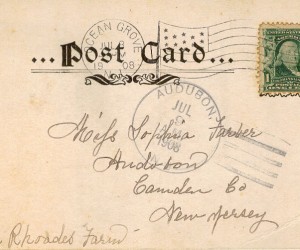 OCEAN GROVE
JUL
1908
N.J.
... Post Card...
AUDUBON,
JUL
1908
1
Miss Sophia Farber
Audubon
Camden Co
New Jersey
Rhoades Farm